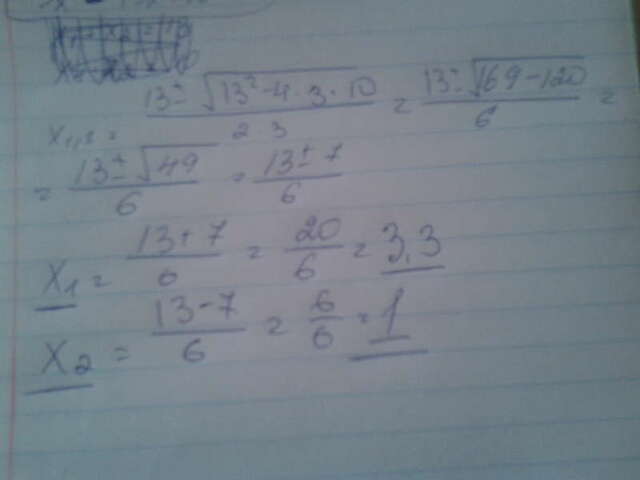 x₁,₂ = (13 ± √(13² - 4 · 3 · 10)) / (2 · 3) = (13 ± √(169 - 120)) / 6 =
= (13 ± √49) / 6 = (13 ± 7) / 6
x₁ = (13 + 7) / 6 = 20 / 6 = 3,3
x₂ = (13 - 7) / 6 = 6 / 6 = 1